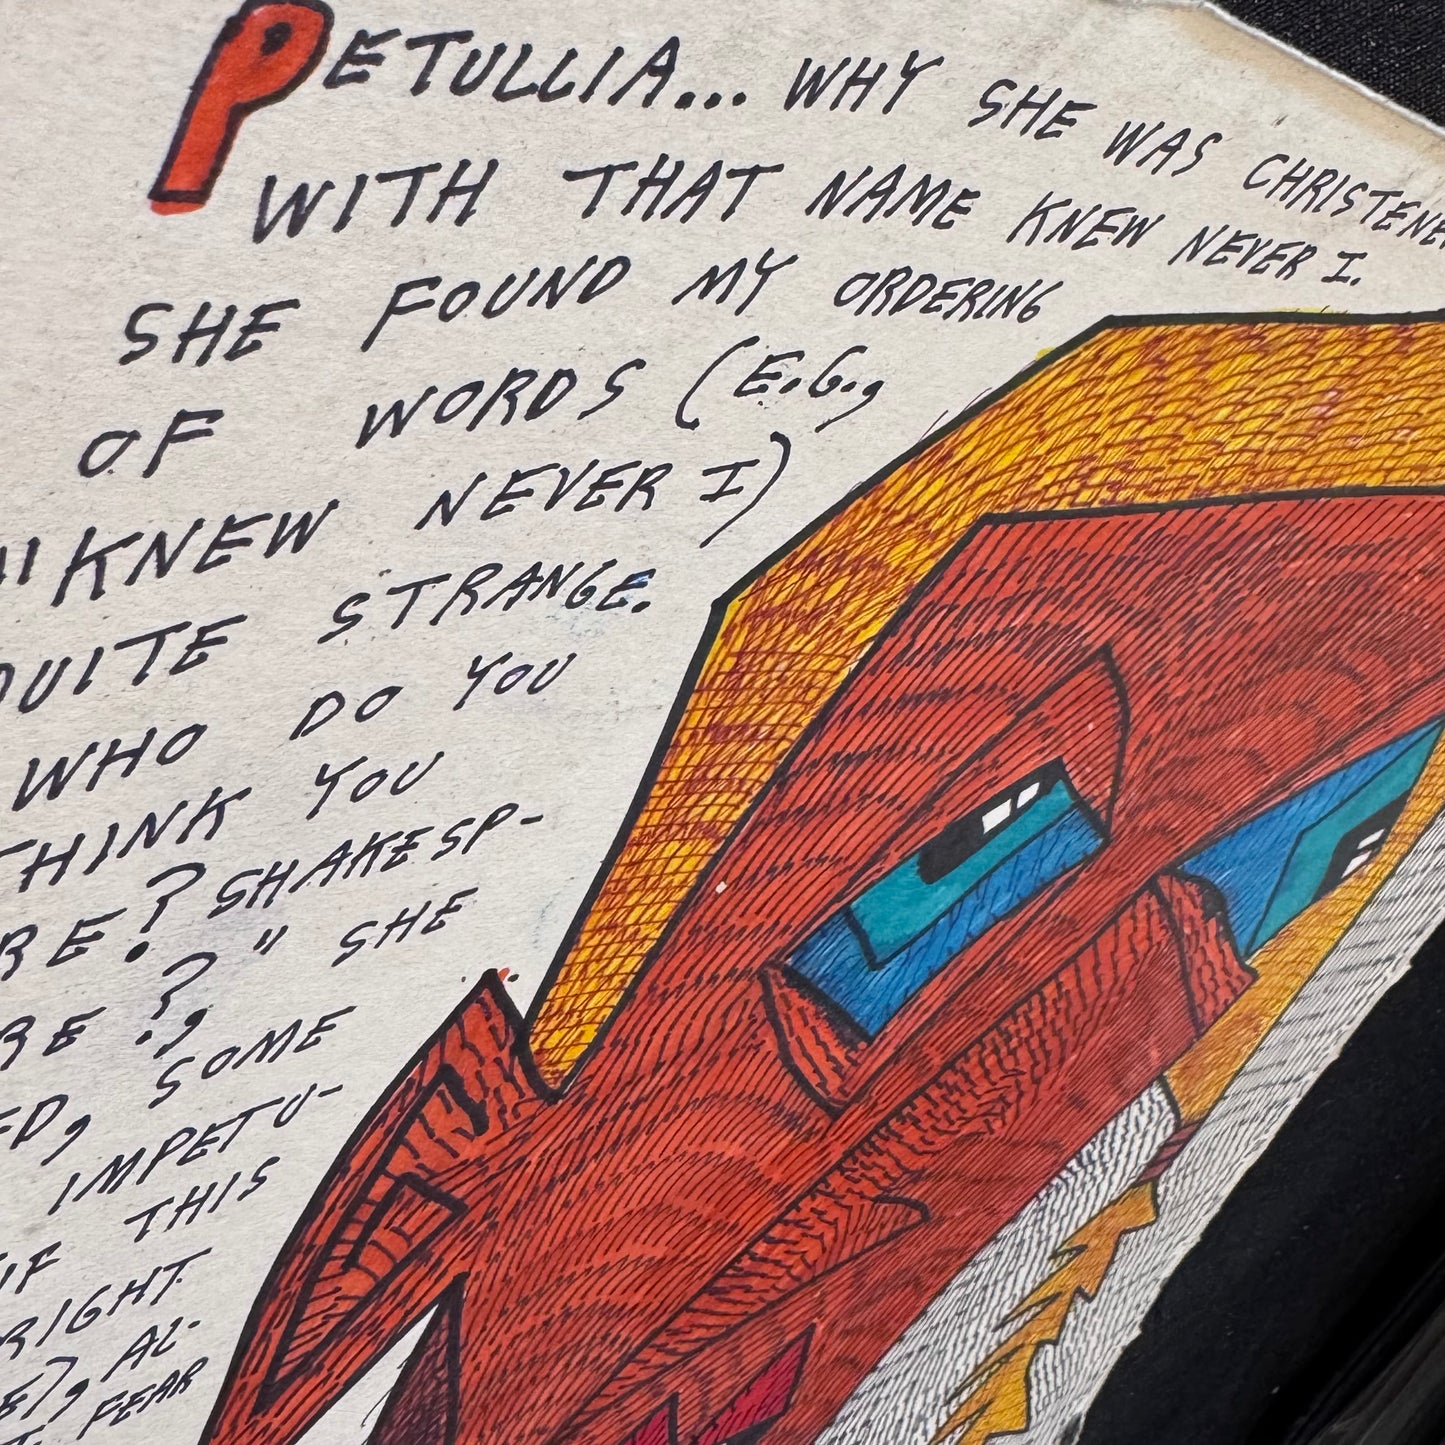 PETULLIA... WHY SHE WAS CHRISTENE
WITH THAT NAME KNEW NEVER I.
SHE FOUND MY ORDERING
OF WORDS (E.G.,
KNEW NEVER I)
QUITE STRANGE.
WHO DO YOU
THINK YOU
RE? SHAKESP-
RE?," SHE
ED, SOME
IMPETU-
IF THIS
RIGHT
E), AL-
T FEAR